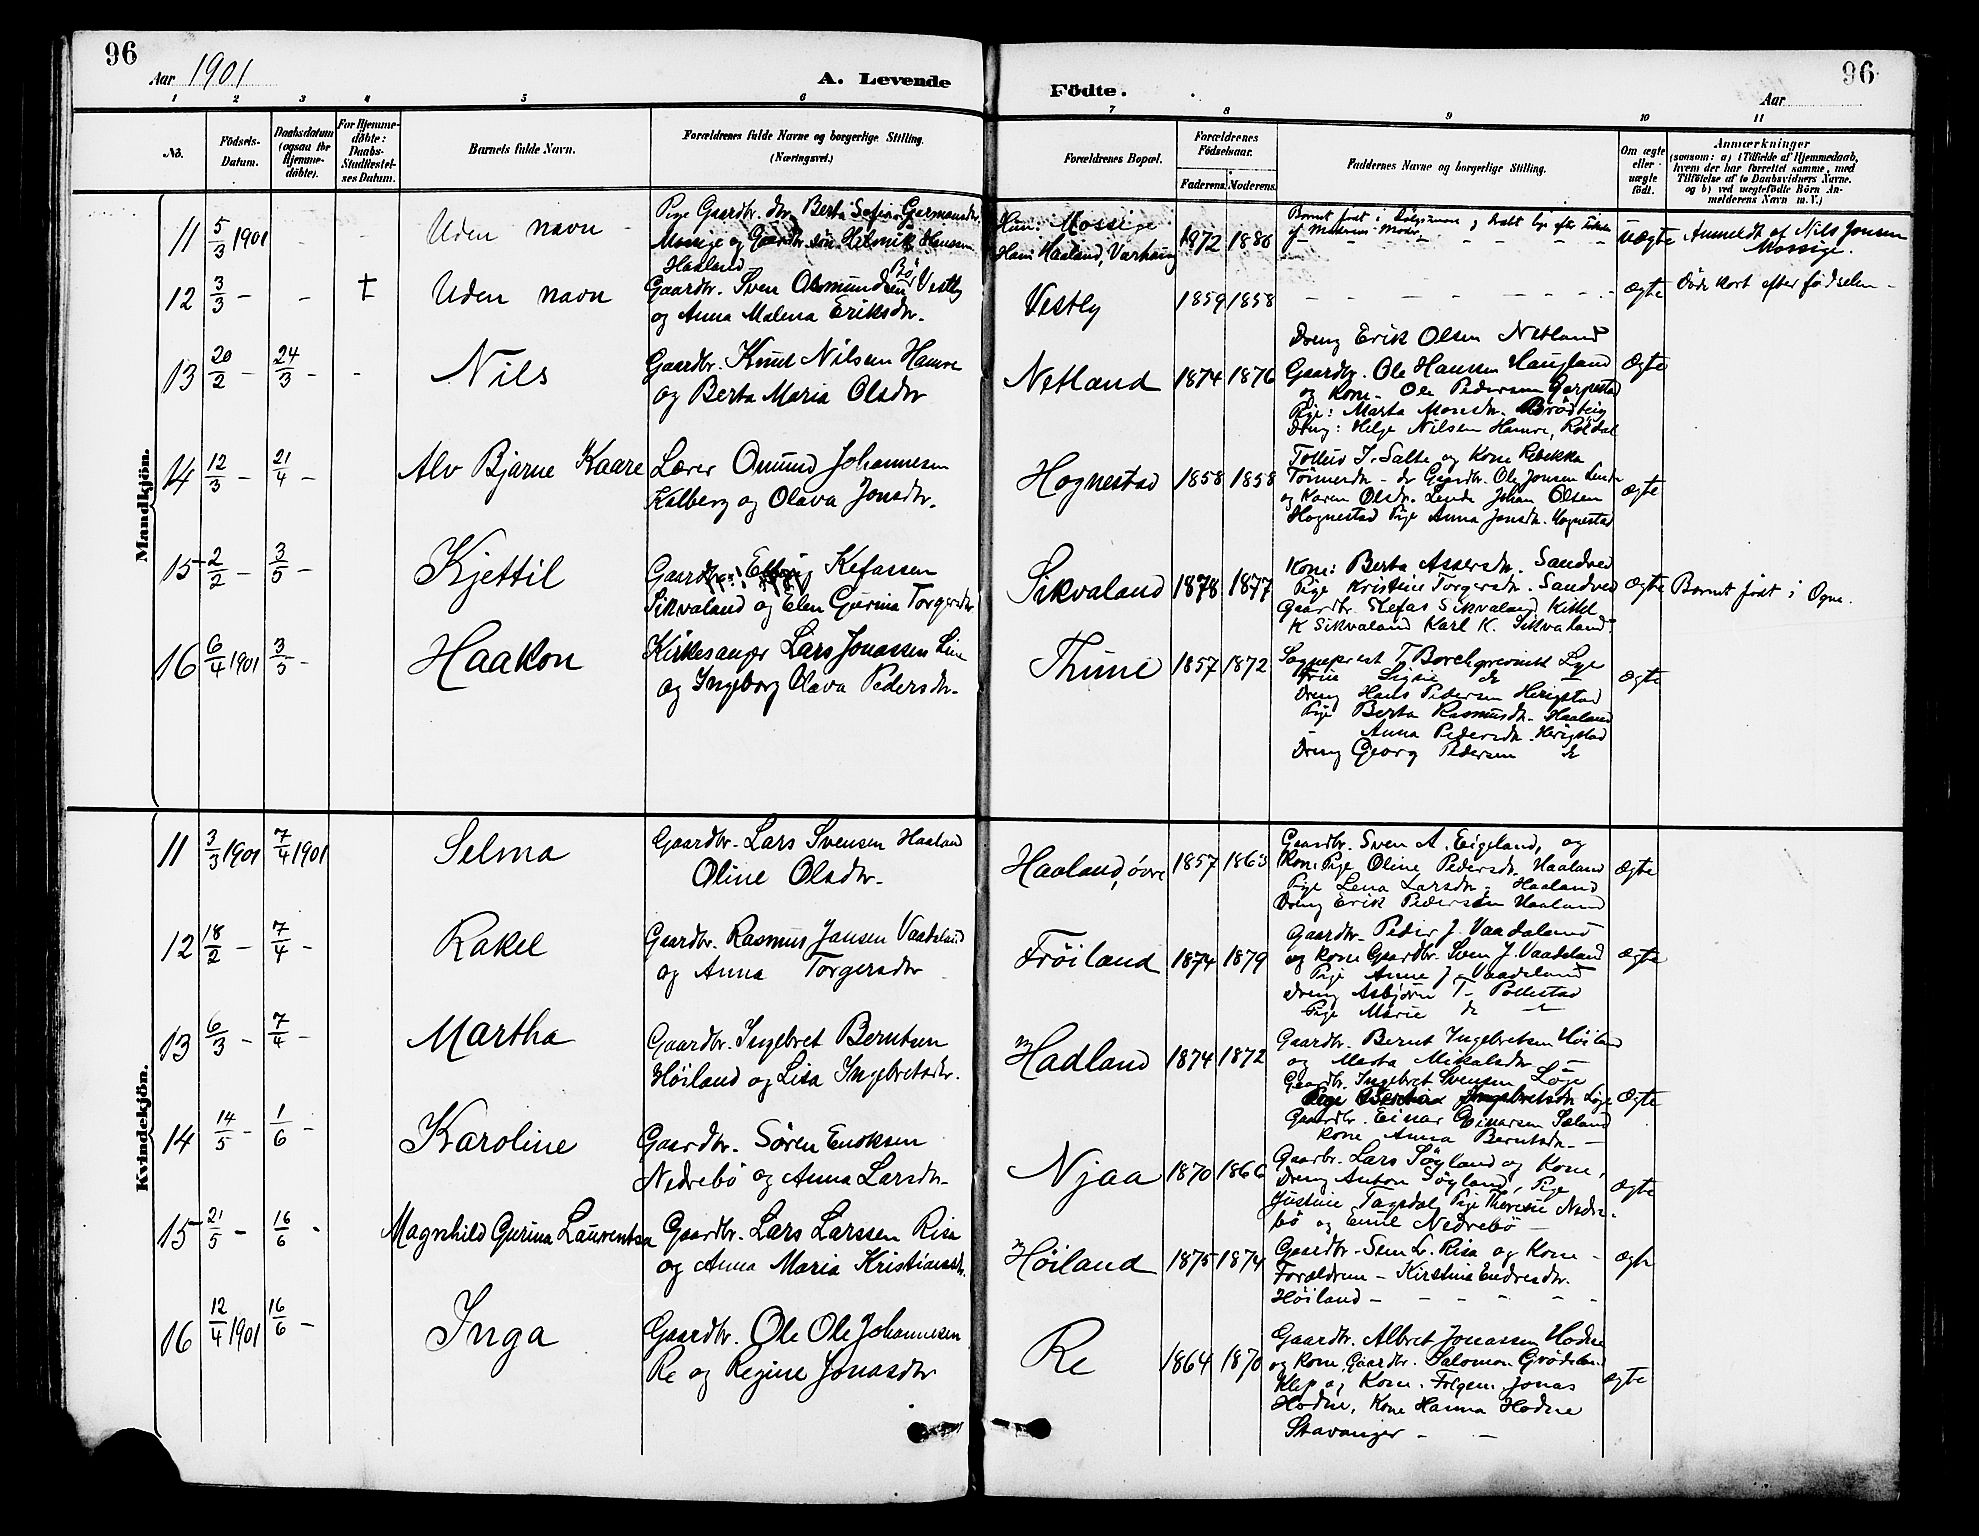 96
Aar 1901
A. Levende
Födte.
Aar
96
1 2 3 4 5 6 7 8 9 10 11
No.
Födsels-Datum.
Daabsdatum (ogsaa for Hjemmedöbte).
For Hjemmedöbte: Daabs-Stadfæstelses Datum.
Barnets fulde Navn.
Forældrenes fulde Navne og borgerlige Stilling. (Næringsvei.)
Forældrenes Bopæl.
Forældrenes Födselsaar.
Faderens. Moderens.
Faddernes Navne og borgerlige Stilling.
Om ægte eller uægte födt.
Anmærkninger
(saasom: a) i Tilfælde af Hjemmedaab, hvem der har forrettet samme, med Tilföielse af to Daabsvidners Navne. og b) ved uægtefödte Börn Anmelderens Navn m. V.)
Mandkjön.
11 5/3 1901 - - Uden navn -
Pige Gaardbr. dtr. Berta Sofie Germansdtr.
Mossige og Gaardbr. sön Helmik Hansen
Haaland
Hun: Mossige
Ham: Haaland, Varhaug
1872 1880
Barnet födt i
af Moderens Moder
uægte
Anmeldt af Nils Jonsen
Mossige.
12 3/3 - - † Uden navn
Gaardbr. Sven Osmundsen Bö Vestly
og Anna Malena Eriksdtr.
Vestly 1859 1858 - - - - ægte Döde kort efter födselen -
13 20/2 - 24/3 - - Nils
Gaardbr. Knud Nilsen Hamre
og Berta Maria Olsdtr
Netland 1874 1876
Dreng Erik Olsen Netland
Gaardbr. Ole Hansen Haugland
og Kone. Ole Pedersen Gerpestad
Pige: Marta Monsdtr. Brödteig
Dreng: Helge Nilsen Hamre, Röldal
Ægte
14 12/3 - 21/4 - Alv Bjarne Kaare
Lærer Omund Johannesen
Kalberg og Olava Jonsdtr.
Hognestad 1858 1858
Tollev I. Salte og Kone Rebekka
Tönnesdtr - do Gaardbr. Ole Jonsen Lende
og Karen Olsdtr. Lende Johan Olsen
Hognestad Pige Anna Jonsdtr. Hognestad
ægte
15 2/2 - 3/5 - Kjettil
Gaardbr. Kefassen
Sikvaland og Elen Gurina Torgersdtr
Sikvaland 1878 1877
Kone: Berta Assersdtr. Sandved
Pige Kristine Torgersdtr. Sandved
Gaardbr. Kefas Sikvaland Kittel
K Sikvaland Karl K. Sikvaland.
ægte Barnet födt i Ogne.
16 6/4 1901 3/5 - Haakon
Kirkesanger Lars Jonassen Line
og Ingeborg Olava Pedersdtr.
Thime 1857 1872
Sogneprest T Borchgrevink Lye
Frue Signe do -
Dreng Hans Pedersen Herigstad
Pige Berta Rasmusdtr. Haaland
Anna Pedersdtr. Herigstad
Dreng Georg Pedersen do
ægte
Kvindekjön.
11 3/3 1901 7/4 1901 Selma
Gaardbr. Lars Svensen Haaland
Oline Olsdtr.
Haaland, övre 1857 1863
Gaardbr. Sven A. Eigeland, og
Kone Pige Oline Pedersdtr. Haaland
Pige Lena Larsdtr. Haaland
Dreng Erik Pedersen Haaland
ægte
12 18/2 - 7/4 - Rakel
Gaardbr. Rasmus Jansen Vaadeland
og Anna Torgersdtr
Fröiland 1874 1879
Gaardbr. Peder J. Vaadeland
og kone Gaardbr. Sven J. Vaadeland
Pige Anne J - Vaadeland
Dreng Asbjörn T- Pollestad
Pige Marie do -
ægte
13 6/3 - 7/4 - Martha
Gaardbr. Ingebret Berntsen
Höiland og Lisa Ingebretsdtr.
Hadland 1874 1872
Gaardbr. Bernt Ingebretsen Höiland
og Marta Mikalsdtr -
Gaardbr. Ingebret Svensen Löge
Pige Ingebretsdtr Löge
Gaardbr. Einar Einarsen Sæland
Kone Anna Berntsdtr. -
Ægte
14 14/5 - 1/6 - Karoline
Gaardbr. Sören Enoksen
Nedrebö og Anna Larsdtr.
Njaa 1870 1866
Gaarbr. Lars Söyland og Kone,
Dreng Anton Söyland, Pige
Justine Taksdal, Pige Therese Nedre-
bö og Emil Nedrebö -
ægte
15 21/5 - 16/6 - Magnhild Gurina Laurentsa
Gaardbr. Lars Larssen Risa
og Anna Maria Kristiansdtr.
Höiland 1875 1874
Gaardbr. Sem L. Risa og Kone -
Foraldrene - Kirstine Endresdtr.
Höiland - - - - -
ægte
16 12/4 1901 16/6 - Inga
Gaardbr. Ole Ole Johannesen
Re og Regine Jonasdtr
Re 1864 1870
Gaardbr. Albret Jonassen Hodne
og Kone, Gaardbr. Salomon Grödeland
Klep og Kone. Jonas
Hodne, Kone Hanna Hodne
Stavanger - -
ægte